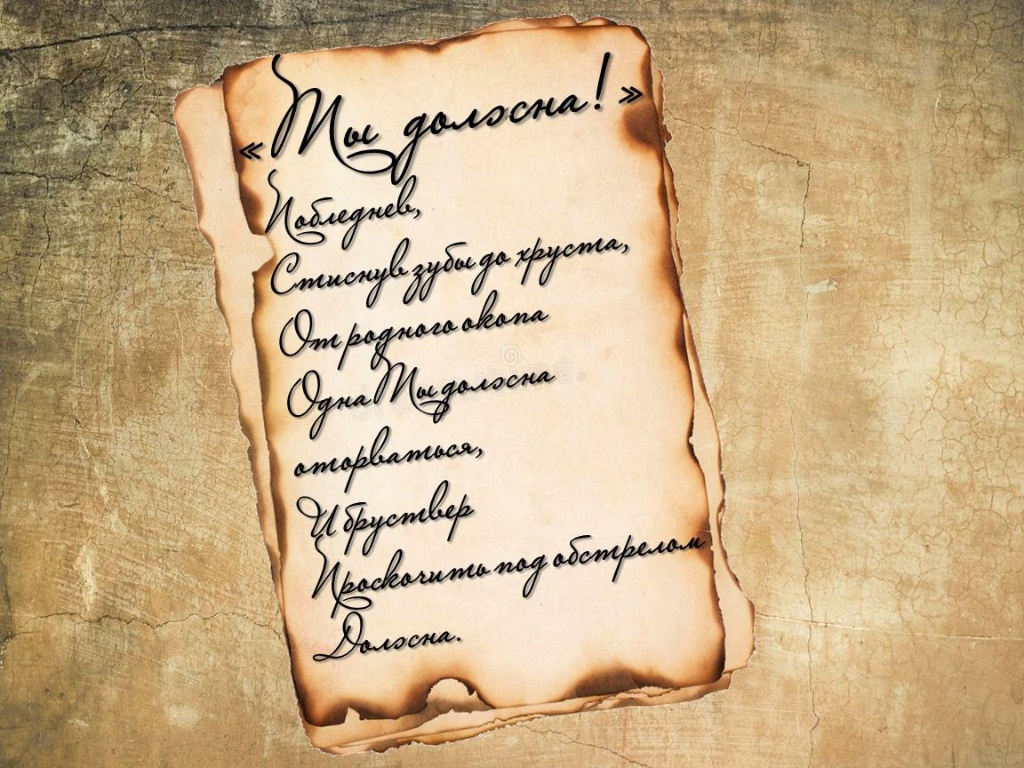 «Ты должна!»
Побледнев,
Стиснув зубы до хруста,
От родного окопа
Одна Ты должна
оторваться,
И бруствер
Проскочить под обстрелом
Должна.